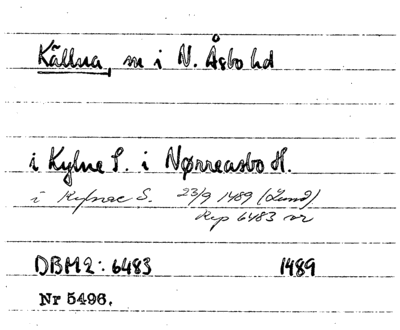 Källna, sn i N. Åsbo hd
i Kylne S. i Nørreasbo H.
i Kylnae S. 23/9 1489 (Lund)
Rep 6483 or
DBM2: 6483 1489
Nr 5496.